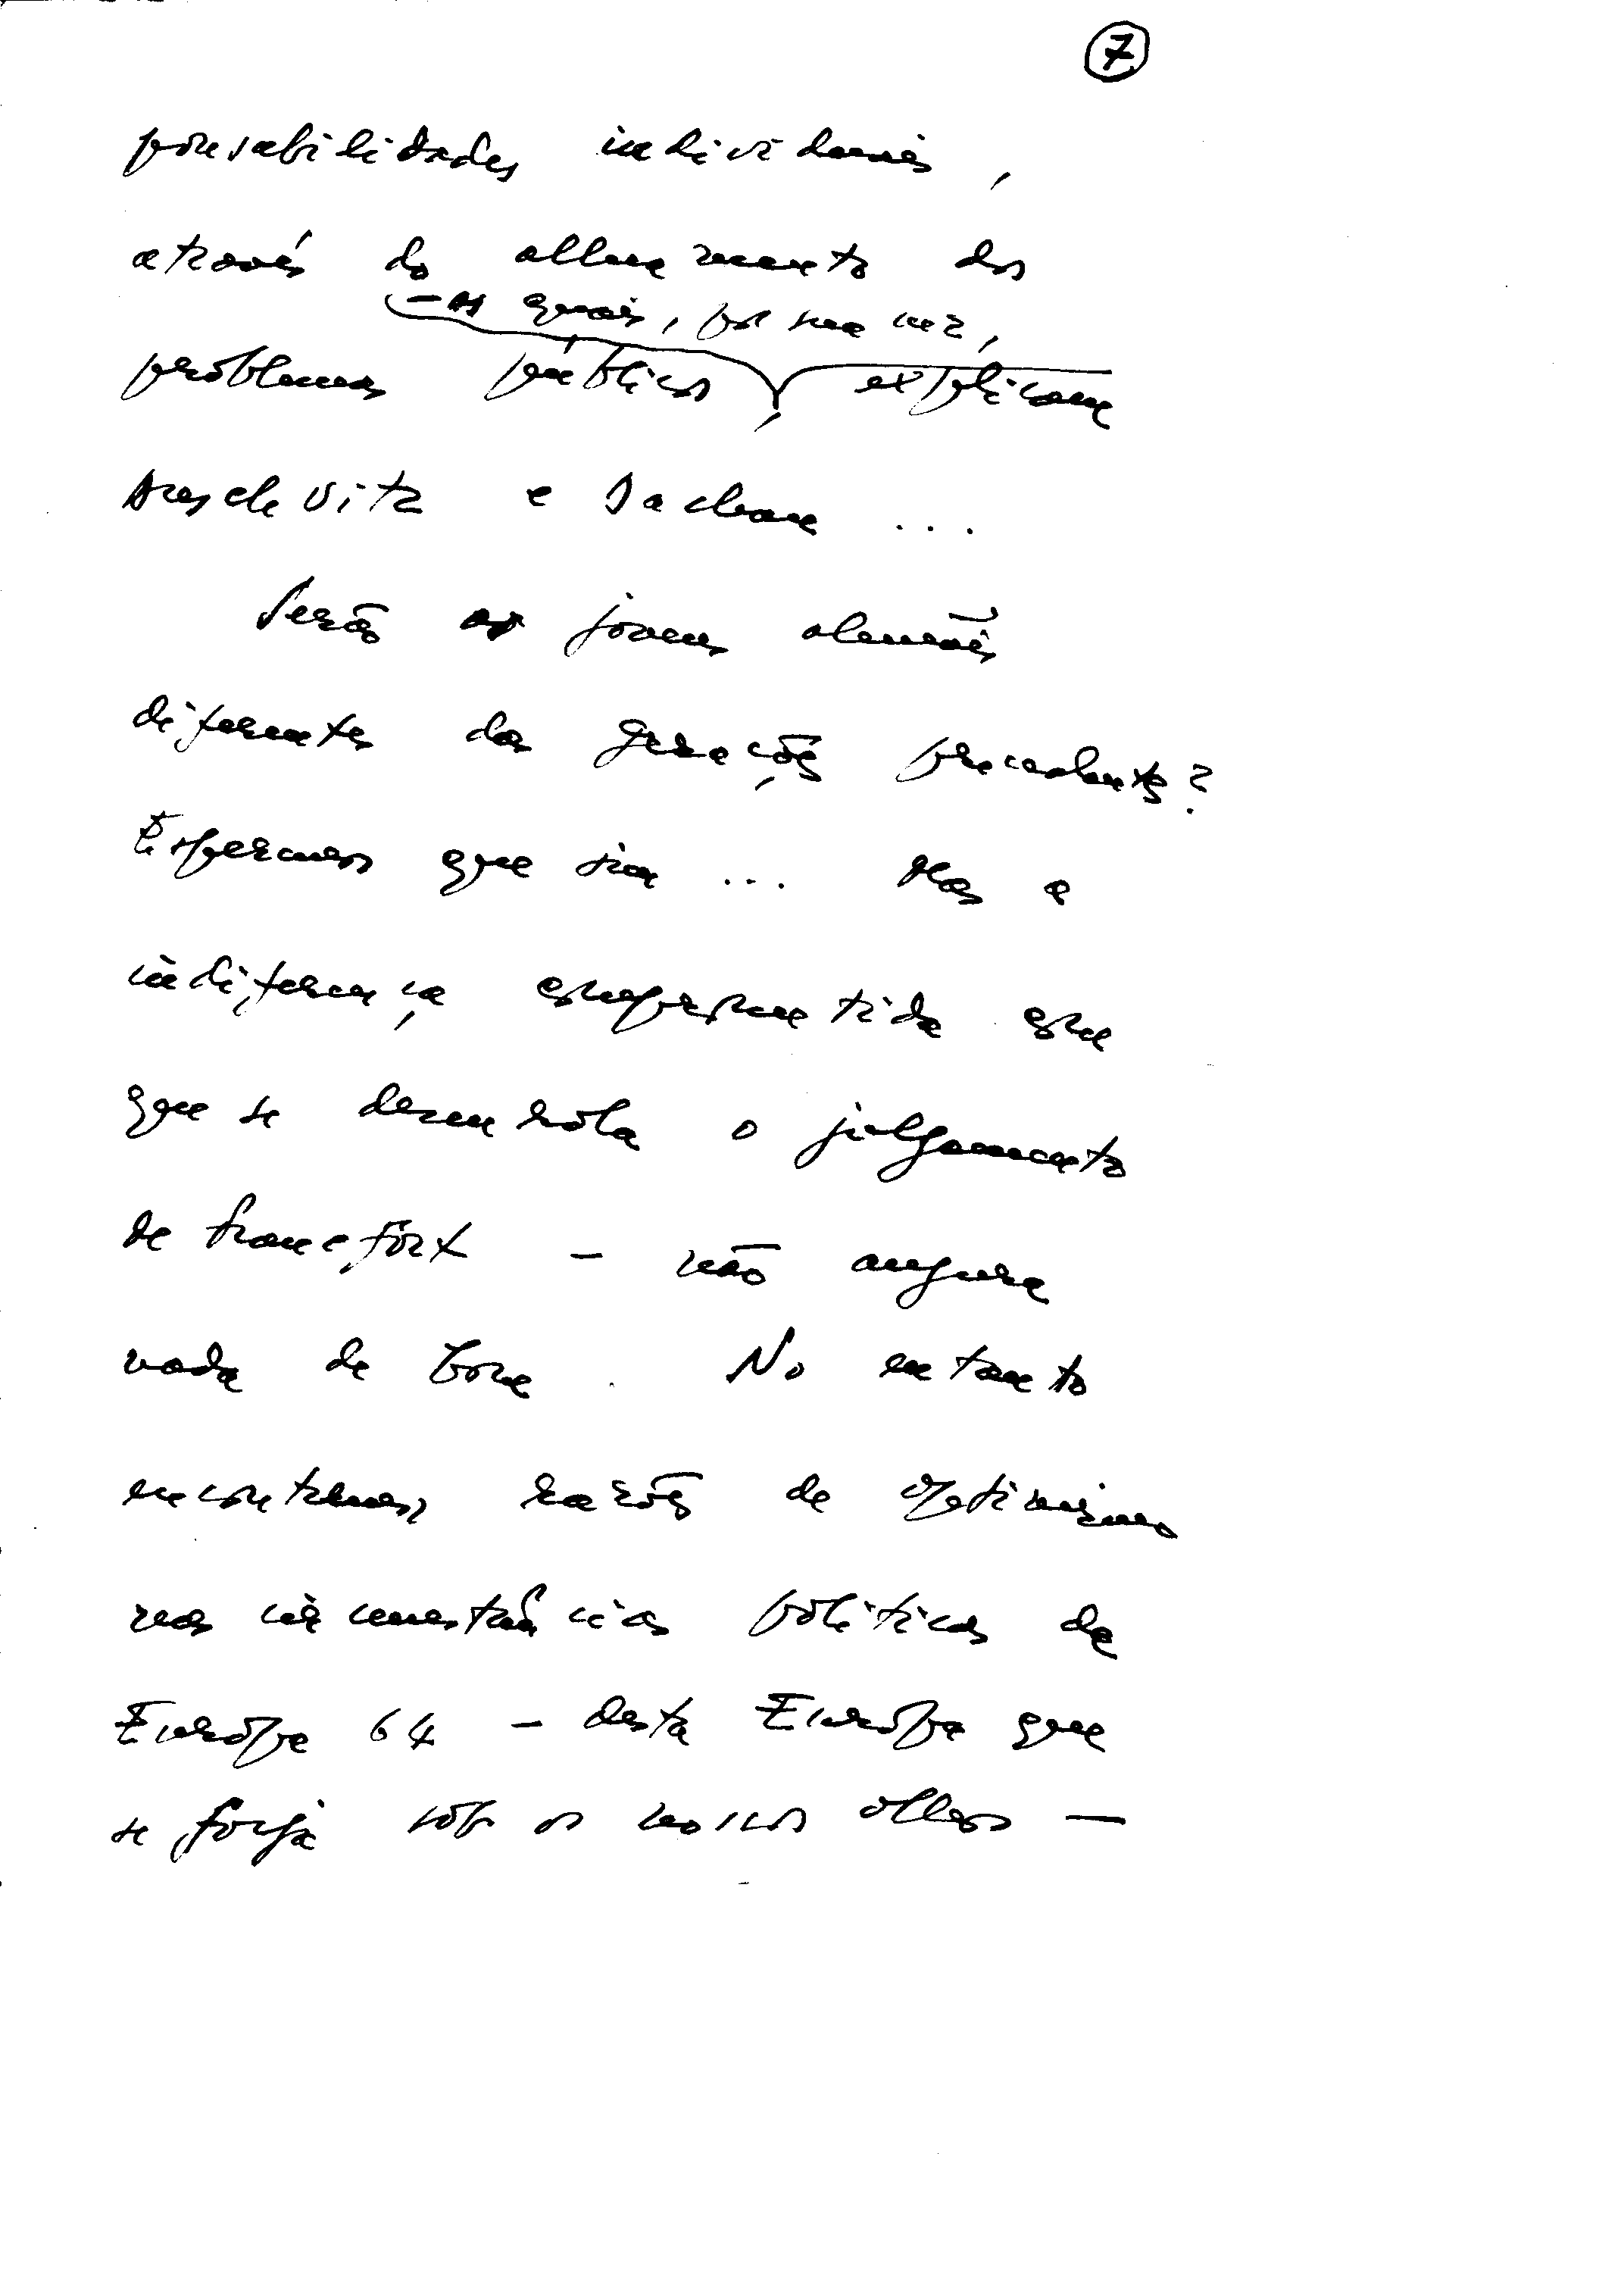 7
ponsabilidades individuais,
através do alheamento dos
– os quais, por sua vez,
problemas públicos, explicam
Auschvitz e Dachau ...
Serão os jovens alemães
diferentes das gerações precedentes?
Esperemos que sim ... Mas a
indiferença comprometida em
que se desenrola o julgamento
de Francfort – não augura
nada de bom. No entanto
encontramos razões de optimismo
nas circunstâncias políticas da
Európa 64 – desta Európa que
se forja sob os nossos olhos –